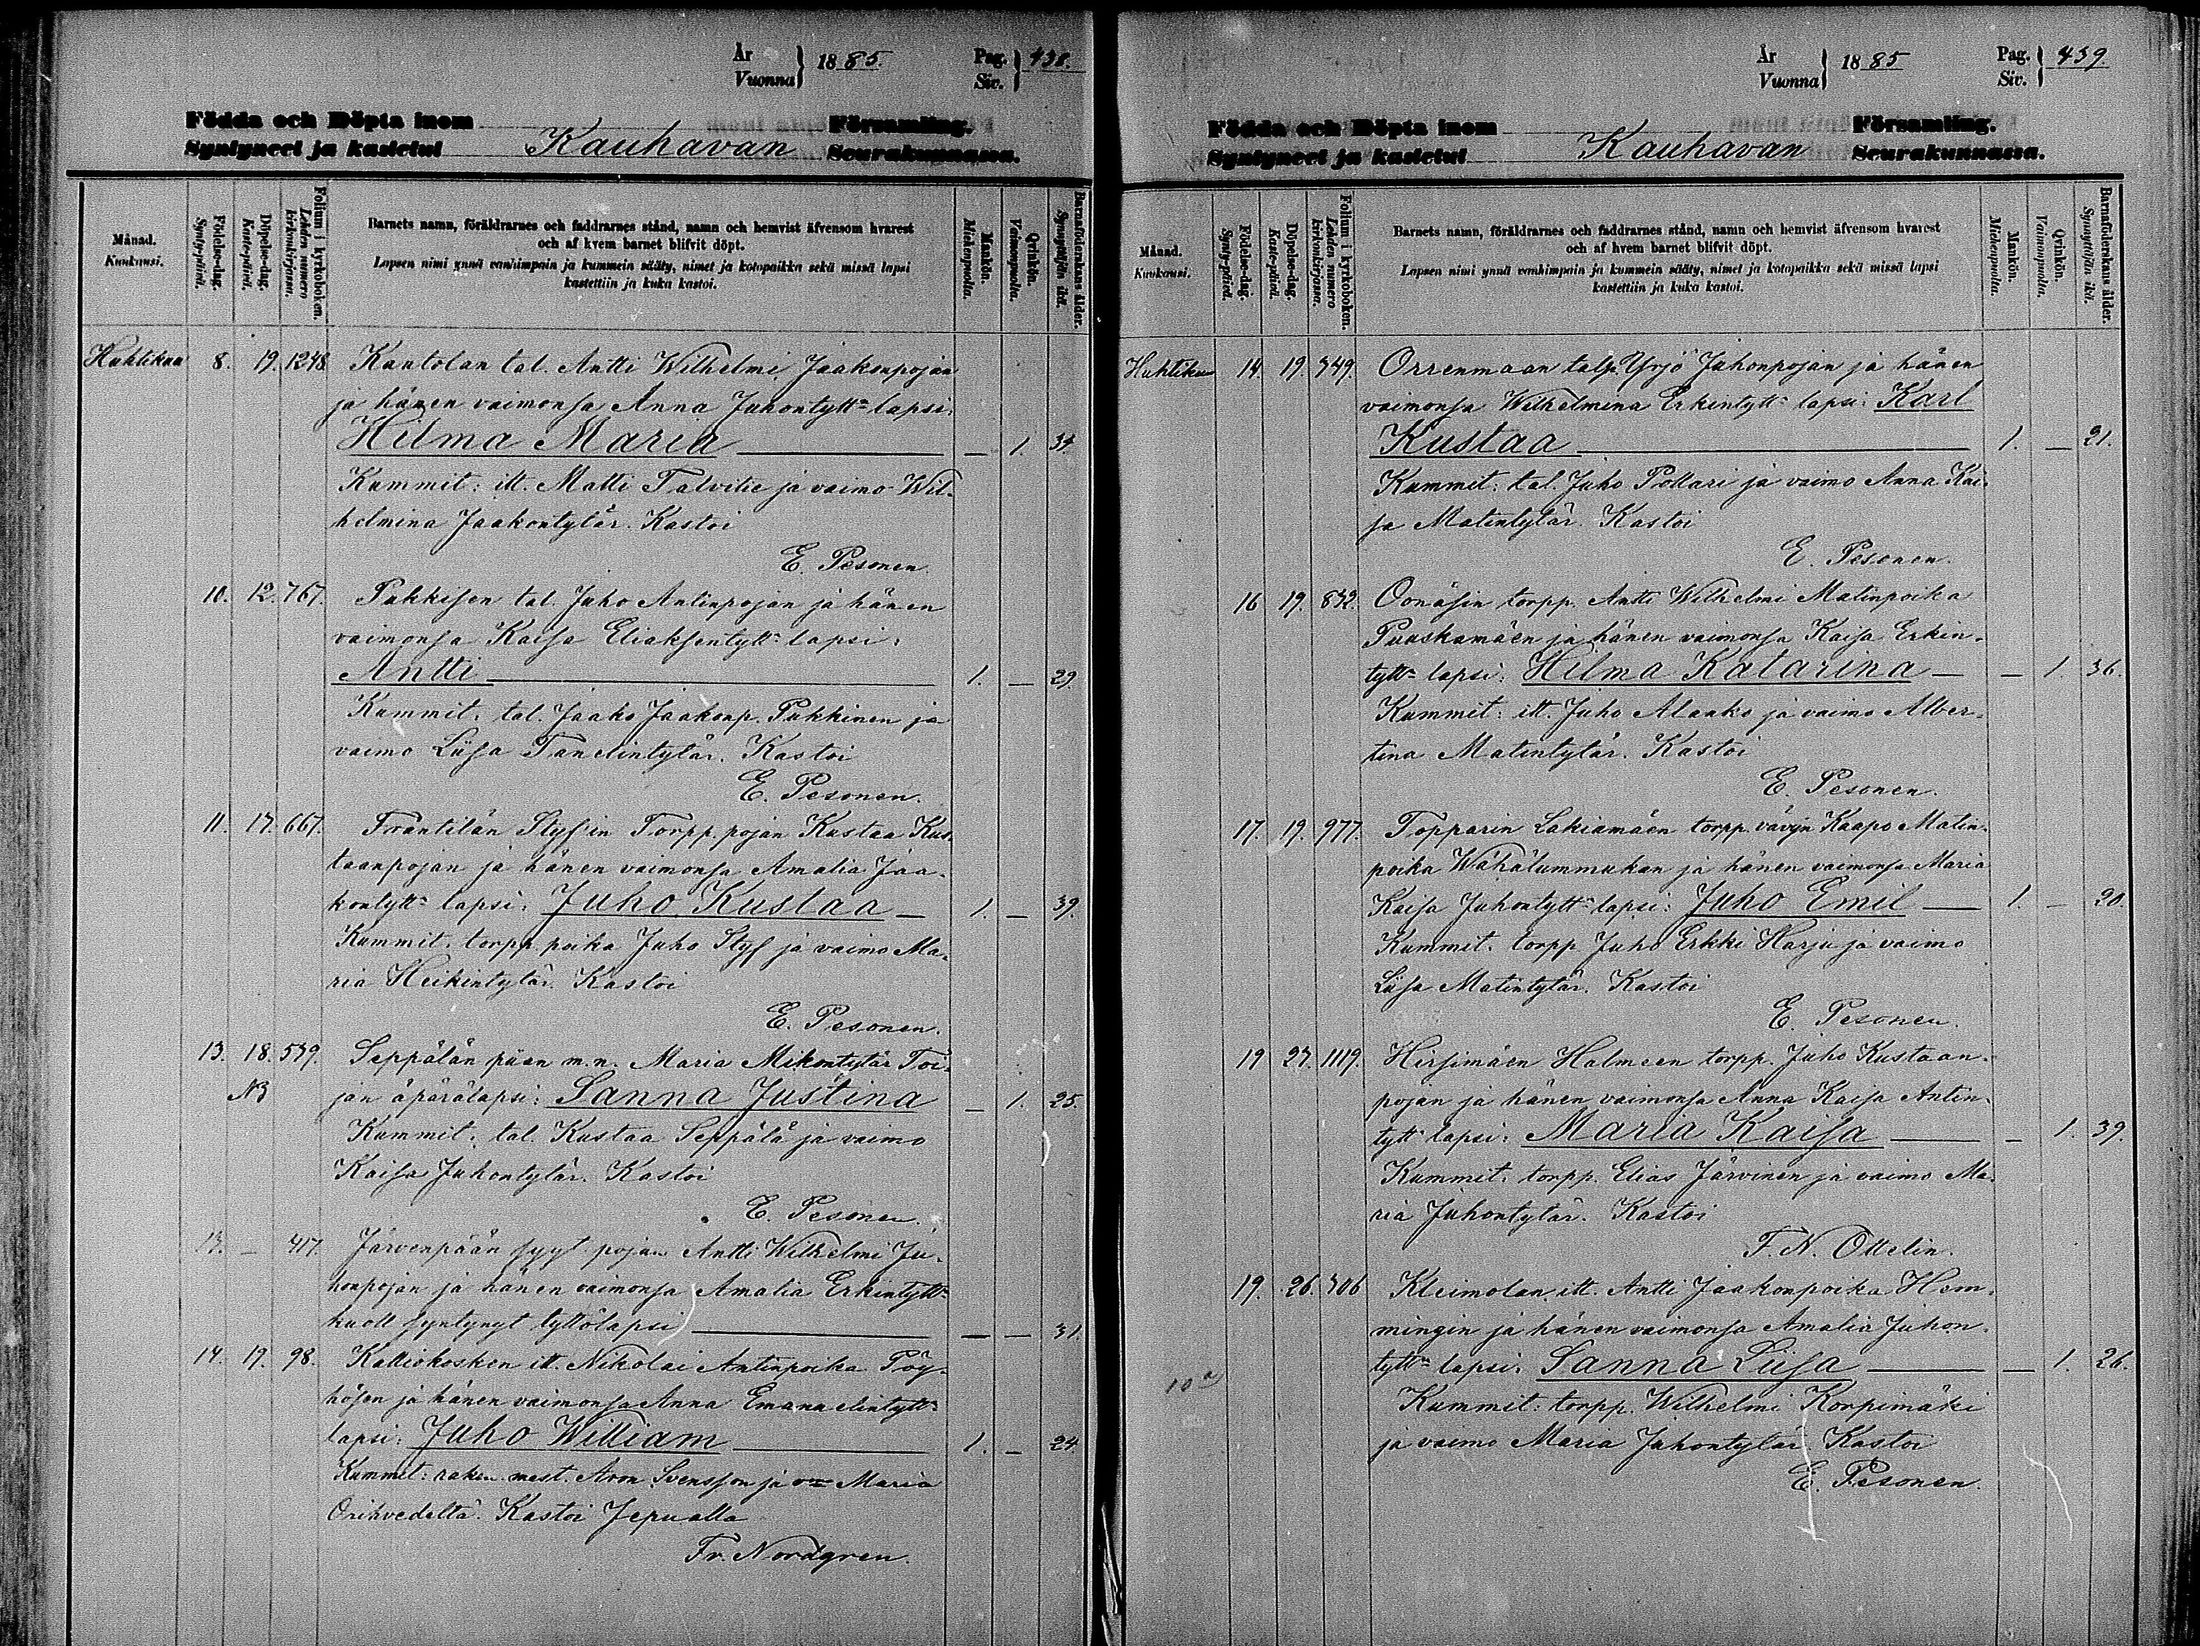 År
Vuonna } 1885.
Pag.
Siv. } 438.
Födda och Döpta inom Församling.
Syntyneet ja kastetut Kauhavan Seurakunnassa.
Månad.
Kuukausi.
Födelse-dag.
Syntypäivä.
Döpelse-dag.
Kastepäivä.
Folium i kyrkoboken.
Lehden numero kirkonkirjassa.
Barnets namn, föräldrarnes och faddrarnes stånd, namn och hemvist äfvensom hvarest
och af hvem barnet blifvit döpt.
Lapsen nimi ynnä vanhimpain ja kummein sääty, nimet ja kotopaikka sekä missä lapsi
kastettiin ja kuka kastoi.
Mankön.
Miehenpuolta.
Qvinkön.
Vaimonpuolta.
Barnaföderskans ålder.
Synnyttäjän ikä.
Huhtikuu 8. 19. 1248 Kantolan tal. Antti Wilhelmi Jaakonpojan
ja hänen vaimonsa Anna Juhontytt= lapsi:
Hilma Maria — — 1. 34.
Kummit: itt. Matti Talvitie ja vaimo Wil-
helmina Jaakontytär. Kastoi
E. Pesonen.
10. 12. 767. Pukkisen tal. Juho Antinpojan ja hänen
vaimonsa Kaisa Eliaksentytt= lapsi:
Antti — 1. — 29.
Kummit: tal. Jaako Jaakonp. Pukkinen ja
vaimo Liisa Tanelintytär. Kastoi
E. Pesonen.
11. 17. 667. Frantilän Styf'in Torpp. pojan Kustaa Kus-
taanpojan ja hänen vaimonsa Amalia Jaa-
kontytt= lapsi: Juho Kustaa — 1. — 39.
Kummit: torpp. poika Juho Styf ja vaimo Ma-
ria Heikintytär. Kastoi
E. Pesonen.
13. 18. 539. Seppälän piian m.n. Maria Mikontytär Toi-
NB jan äpärälapsi: Sanna Justina — 1. 25.
Kummit: tal. Kustaa Seppälä ja vaimo
Kaisa Juhontytär. Kastoi
E. Pesonen.
13. — 417. Järvenpään syyt. pojan Antti Wilhelmi Ju-
honpojan ja hänen vaimonsa Amalia Erkintytt=
kuoll. syntynyt tyttölapsi — — — 31.
14. 19. 98. Kalliokosken itt. Nikolai Antinpoika Pöy-
hösen ja hänen vaimonsa Anna Emanuelintytt=
lapsi: Juho William — 1. — 24
Kummit: raken. mest. Aron Svensson ja v= Maria
Orihvedeltä. Kastoi Jepualla
Fr. Nordgren.
År
Vuonna } 1885
Pag.
Siv. } 439.
Födda och Döpta inom Församling.
Syntyneet ja kastetut Kauhavan Seurakunnassa.
Månad.
Kuukausi.
Födelse-dag.
Synty-päivä.
Döpelse-dag.
Kaste-päivä.
Folium i kyrkoboken.
Lehden numero kirkonkirjassa.
Barnets namn, föräldrarnes och faddrarnes stånd, namn och hemvist äfvensom hvarest
och af hvem barnet blifvit döpt.
Lapsen nimi ynnä vanhimpain ja kummein sääty, nimet ja kotopaikka sekä missä lapsi
kastettiin ja kuka kastoi.
Mankön.
Miehenpuolta.
Qvinkön.
Vaimonpuolta.
Barnaföderskans ålder.
Synnyttäjän ikä.
Huhtiku 14. 19. 349. Orrenmaan talp. Yrjö Juhonpojan ja hänen
vaimonsa Wilhelmina Erkintytt= lapsi: Karl
Kustaa — 1. — 21.
Kummit: tal. Juho Pollari ja vaimo Anna Kai-
sa Matintytär. Kastoi
E. Pesonen.
16 19. 832. Oonäsin torpp. Antti Wilhelmi Matinpoika
Puuskamäen ja hänen vaimonsa Kaisa Erkin-
tytt= lapsi: Hilma Katarina — — 1. 36.
Kummit: itt. Juho Alanko ja vaimo Alber-
tina Matintytär. Kastoi
E. Pesonen.
17. 19. 977. Topparin Lakiamäen torpp. vävyn Kaapo Matin-
poika Wähälummukan ja hänen vaimonsa Maria
Kaisa Juhontytt= lapsi: Juho Emil — 1. — 20.
Kummit: torpp. Juho Erkki Harju ja vaimo
Liisa Matintytär. Kastoi
E. Pesonen.
19 27. 1119. Hirsimäen Halmeen torpp. Juho Kustaan-
pojan ja hänen vaimonsa Anna Kaisa Antin-
tytt= lapsi: Maria Kaisa — — 1. 39.
Kummit: torpp. Elias Järvinen ja vaimo Ma-
ria Juhontytär. Kastoi
F. N. Ottelin.
19. 26. 306 Kleimolan itt. Antti Jaakonpoika Hem-
mingin ja hänen vaimonsa Amalia Juhon-
tytt= lapsi: Sanna Liisa — — 1. 26.
Kummit: torpp. Wilhelmi Korpimäki
ja vaimo Maria Juhontytär. Kastoi
E. Pesonen.